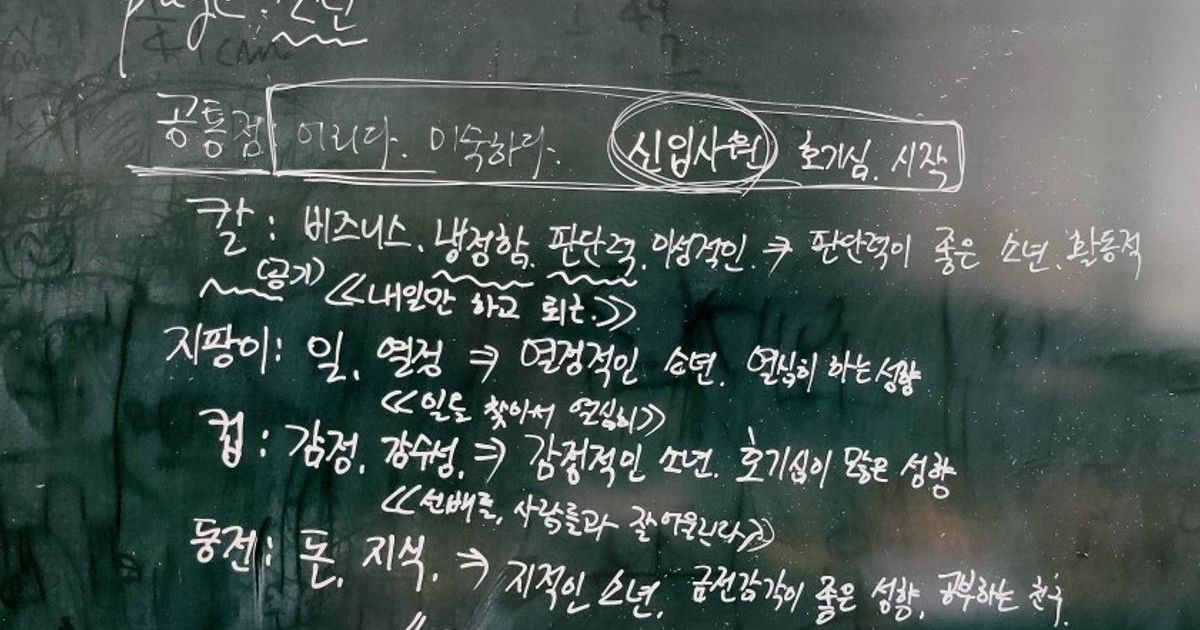 page : 소년
공통점 : 어리다. 미숙하다. 신입사원 호기심, 시작
칼 : 비즈니스, 냉정함, 판단력, 이성적인 → 판단력이 좋은 소년, 활동적
(공기) <<내일만 하고 퇴근.>>
지팡이 : 일, 열정 ⇒ 열정적인 소년. 열심히 하는 성향
<<일을 찾아서 열심히>>
컵 : 감정, 감수성, ⇒ 감정적인 소년. 호기심이 많은 성향
<<선배들, 사람들과 잘 어울린다>>
동전 : 돈, 지식, → 지적인 소년, 금전감각이 좋은 성향, 공부하는 친구